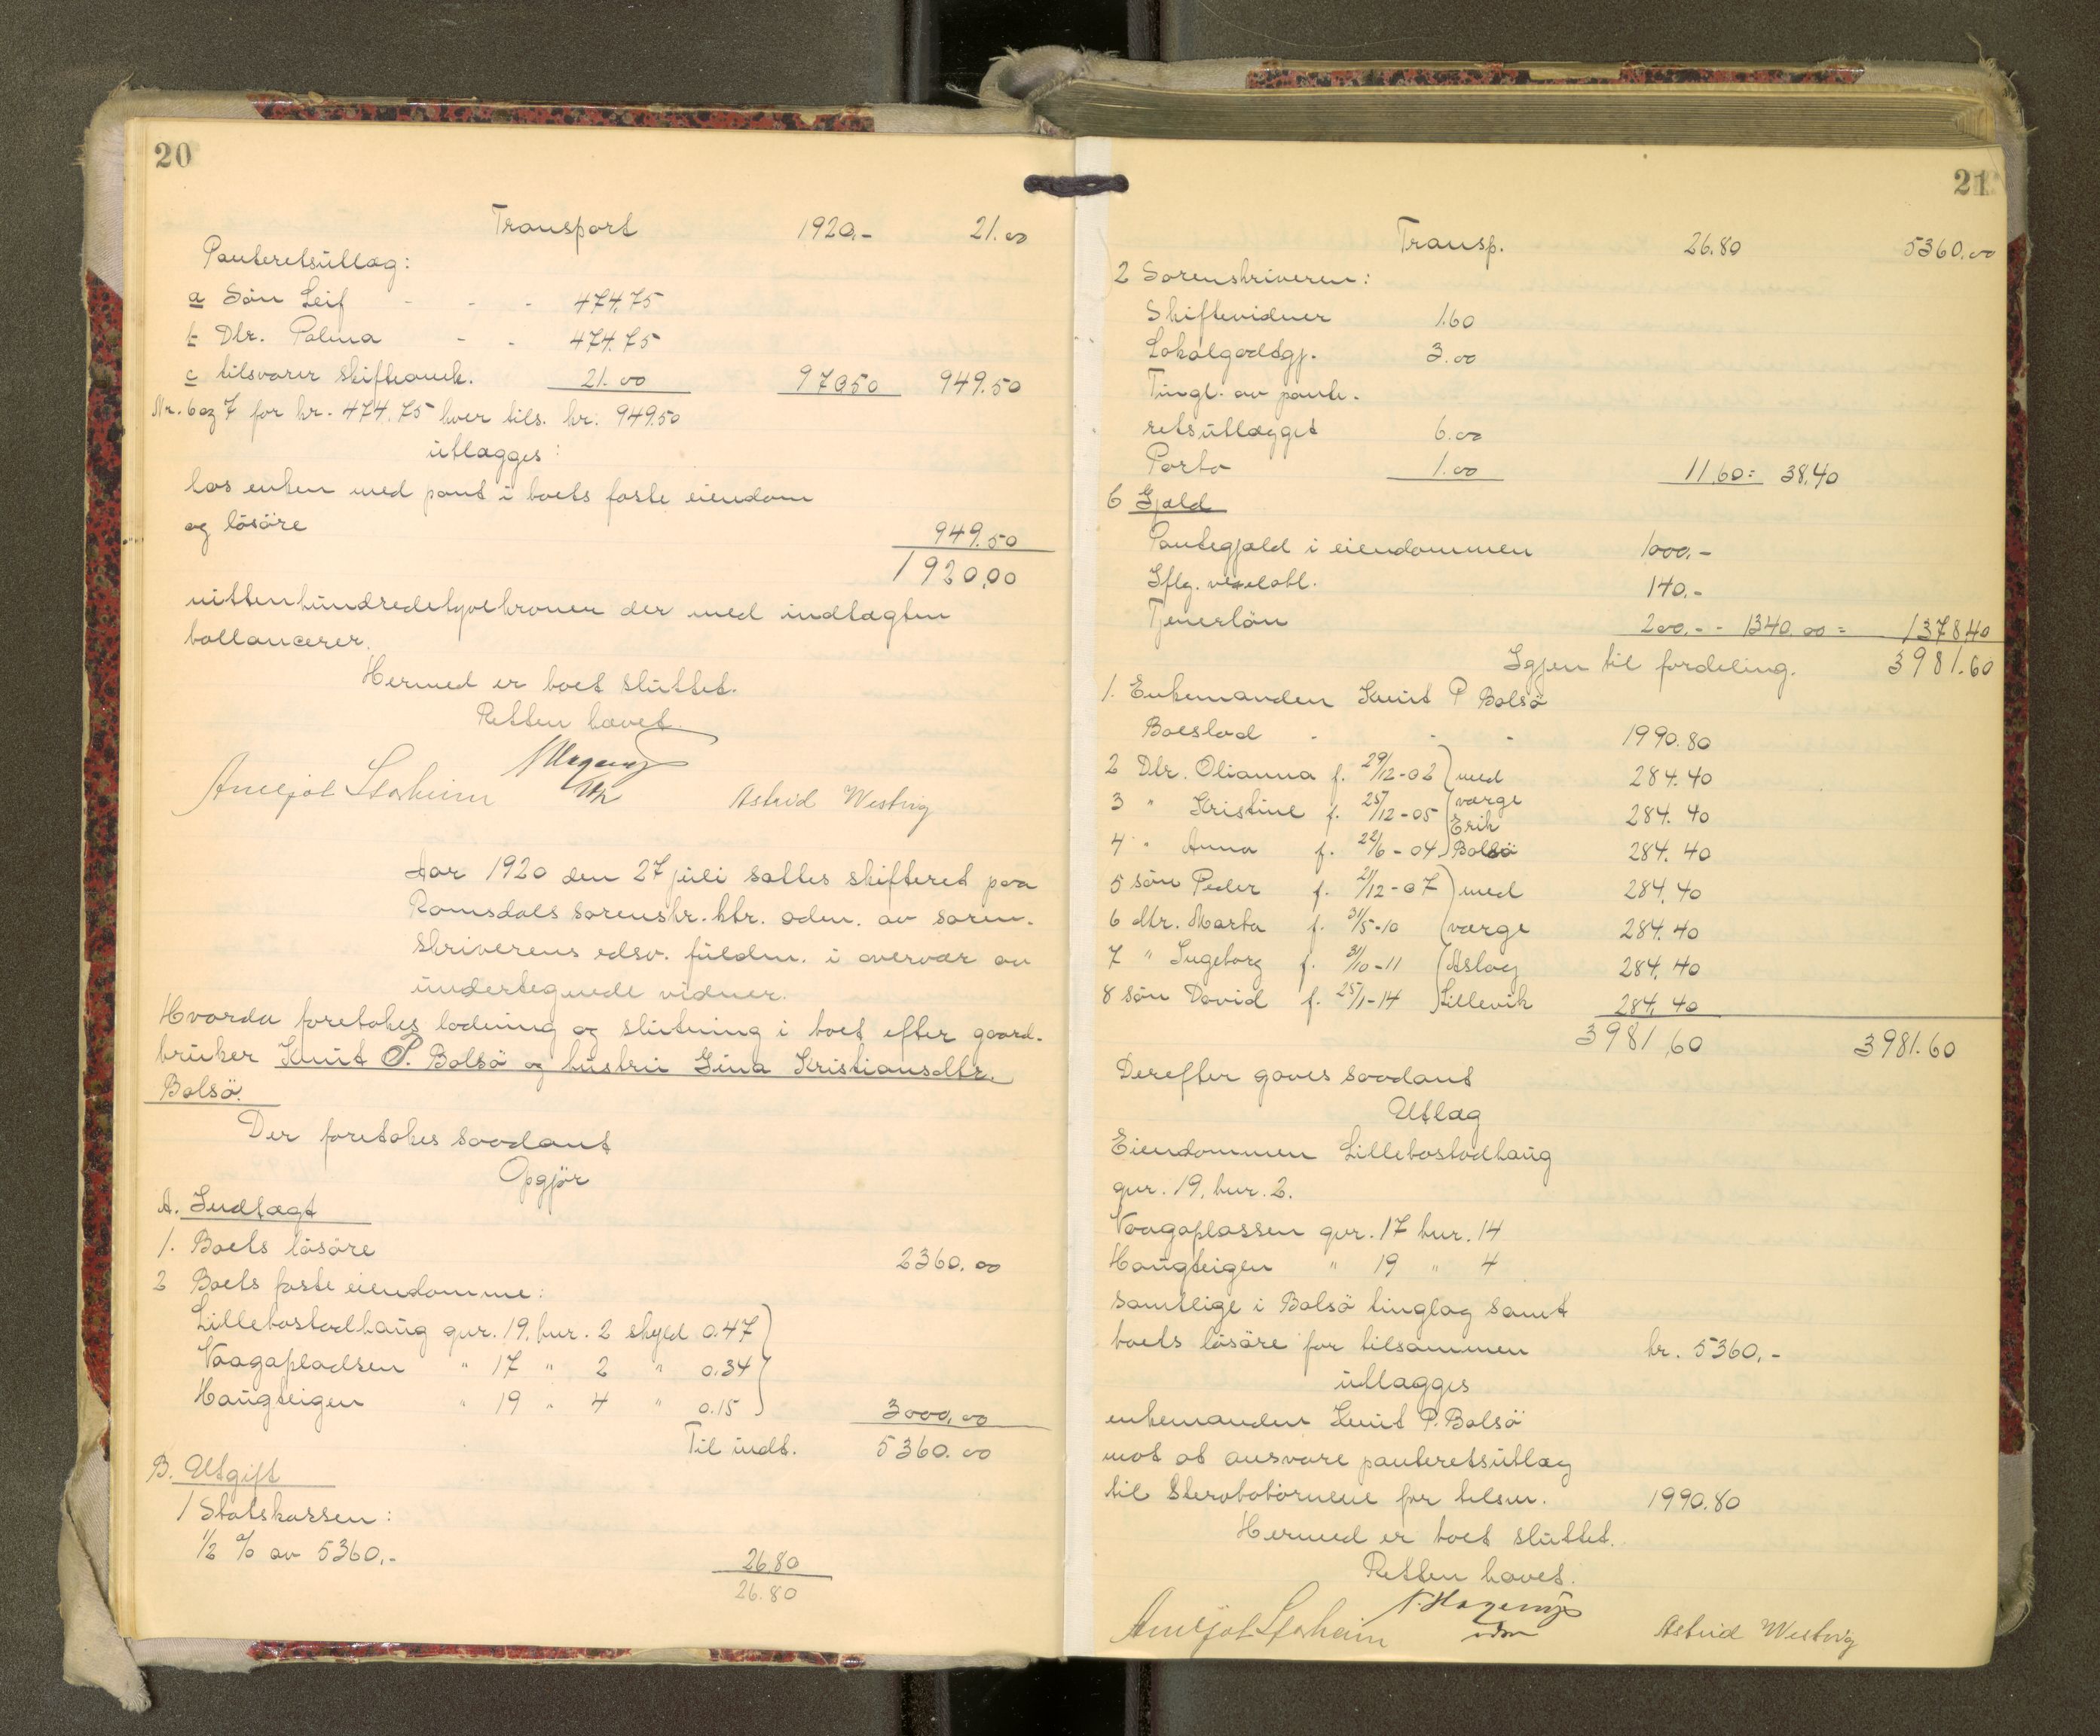 20
Transport 1920.- 21.00
Panteretsutlæg:
a Søn Leif - - - 474.75
b Dtr. Palma - - 474.75
c tilsvarer skifteomk. 21.00 970.50 949.50
Nr. 6 og 7 for kr. 474.75 hver tils. kr. 949.50
utlægges:
hos enken med pant i boets faste eiendom
og løsøre 949.50
1920.00
nittenhundredetyvekroner der med indtægten
ballancerer.
Hermed er boet sluttet.
Retten hævet.
Astrid Westvig
Aar 1920 den 27 juli sattes skifteret paa
Romsdals sorenskr. ktr. adm. av soren-
skriverens edsv. fuldm. i overvær av
undertegnede vidner.
Hvorda foretokes lodning og slutning i boet efter gaard-
bruker Knut P. Bolsø og hustru Gina Kristiansdtr.
Bolsø.
Der foretokes saadant
Opgjør
A. Indtægt
1. Boets løsøre 2360.00
2 Boets faste eiendomme:
Lillebostadhaug gnr. 19, bnr. 2 skyld 0.47
Vaagapladsen " 17 " 2 " 0.34
Haugteigen " 19 " 4 " 0.15 3000.00
Til indt. 5360.00
B. Utgift
1 Statskassen:
1/2 % av 5360.- 26.80
26.80
21
Transp. 26.80 5360.00
2 Sorenskriveren:
Skiftevidner 1.60
Lokalgodtgj. 3.00
Tingl. av pante-
retsutlægget 6.00
Porto 1.00 11.60 = 38.40
b Gjæld
Pantegjæld i eiendommen 1000.-
Iflg. vexelobl. 140.-
Tjenerløn 200.- - 1340.00 = 1378.40
Igjen til fordeling. 3981.60
1. Enkemanden Knut P Bolsø
Boeslod - - - 1990.80
2 Dtr. Olianna f. 29/12-02 med 284.40
3 " Kristine f. 25/12-05 værge Erik 284.40
4 " Anna f. 22/6-04 Bolsø 284.40
5 søn Peder f. 21/12-07 med 284.40
6 dtr. Marta f. 31/5-10 værge 284.40
7 " Ingeborg f. 31/10-11 Aslag 284.40
8 søn David f. 25/1-14 Lillevik 284.40
3981.60 3981.60
Derefter gaves saadant
Utlæg
Eiendommen Lillebostadhaug
gnr. 19, bnr. 2.
Vaagaplassen gnr. 17 bnr. 14
Haugteigen " 19 " 4
samtlige i Bolsø tinglag samt
boets løsøre for tilsammen kr. 5360,-
utlægges
enkemanden Knut P. Bolsø
mot at ansvare panteretsutlæg
til Skrababørnene for tilsm. 1990.80
Hermed er boet sluttet.
Retten hævet.
Astrid Westvig